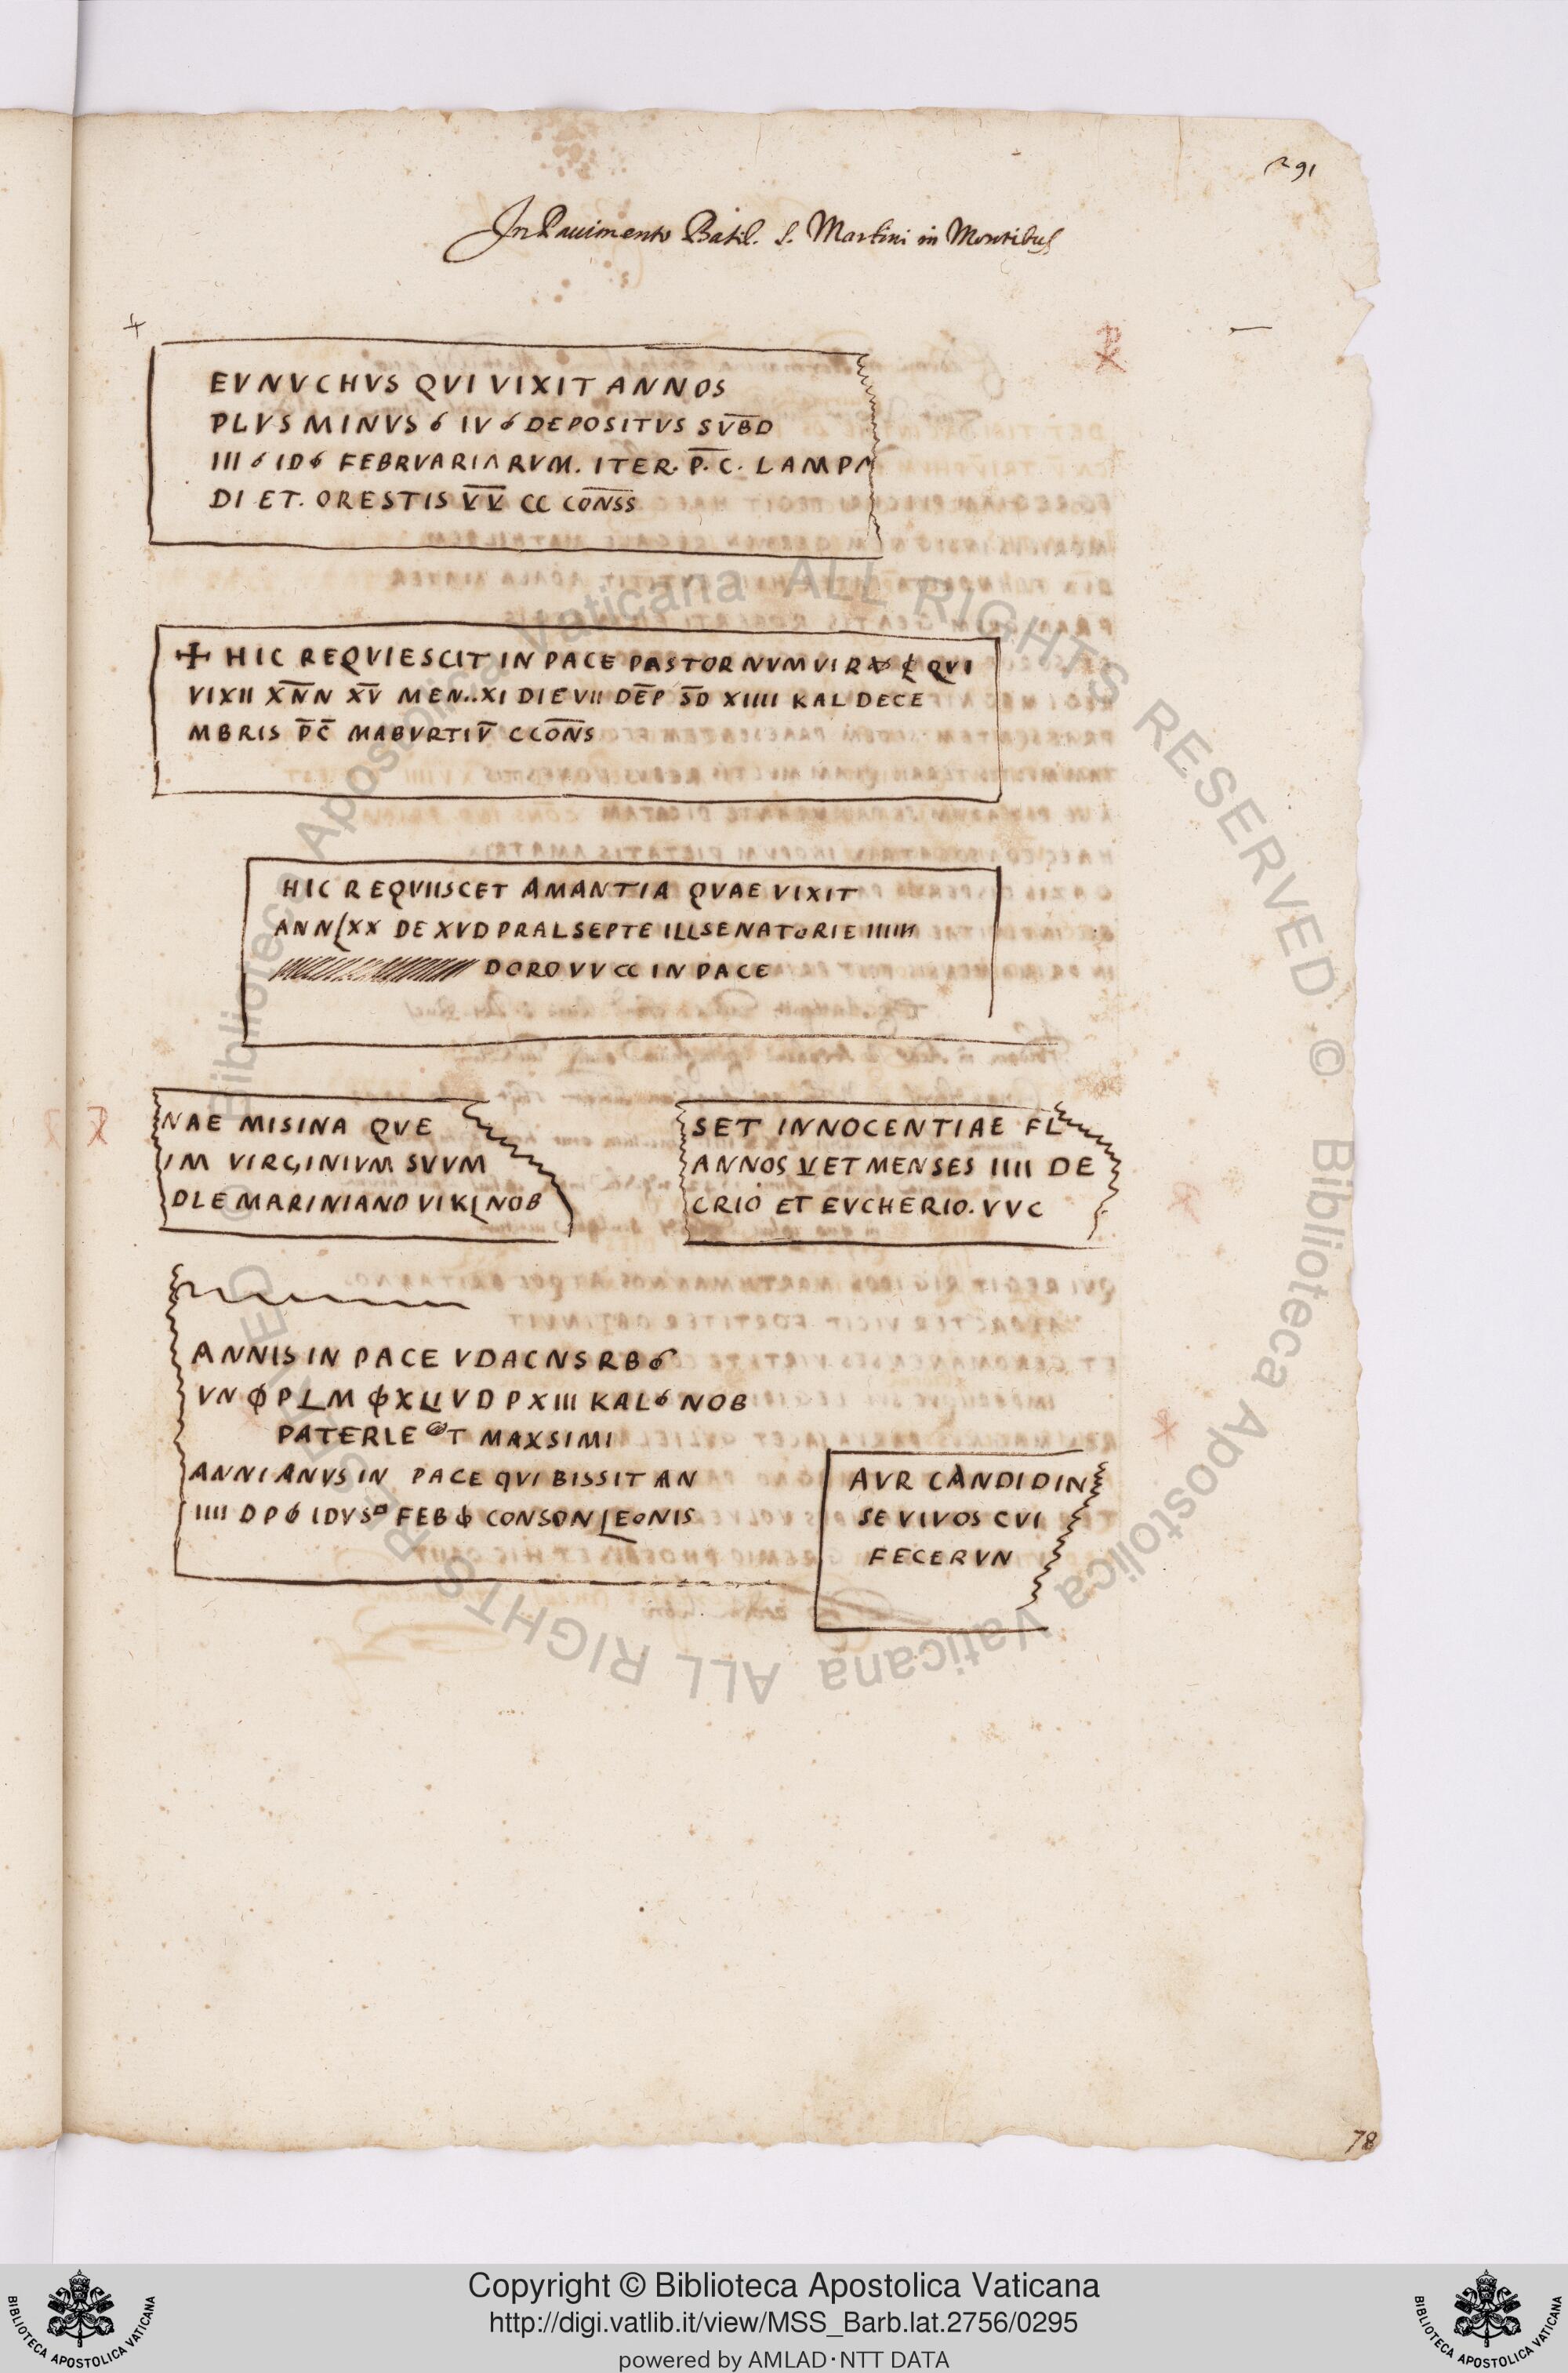 291
In Pauimento Basil. S. Martini in Montibus
EVNVCHVS QVI VIXIT ANNOS
PLVS MINVS 6 IV 6 DEPOSITVS SVB̅D
III 6 ID 6 FEBRVARIARVM. ITER. P̅. C. LAMPA
DI ET. ORESTIS V̅V̅ CC CO̅N̅S̅S
✠ HIC REQVIESCIT IN PACE PASTOR NVMVIR QVI
VIXII XN̅N XV̅ MEN..XI DIE VII DE̅P S̅D XIIII KAL DECE
MBRIS P̅C̅ MABVRTIV̅ CCO̅N̅S
HIC REQVIISCET AMANTIA QVAE VIXIT
ANN LXX DE XVD PRALSEPTE ILLSENATORIE IIIIII
DORO VV CC IN PACE
NAE MISINA QVE
IM VIRGINIVM SVVM
DLE MARINIANO VI KL NOB
SET INNOCENTIAE FL
ANNOS V ET MENSES IIII DE
CRIO ET EVCHERIO. VVC
ANNIS IN PACE VDACNSRB 6
VN ϕ PLM ϕ XLI VDP XIII KAL 6 NOB
PATERLE T MAXSIMI
ANNIANVS IN PACE QVI BISSIT AN
IIII DP 6 IDVS FEB ϕ CONSON LEONIS
AVR CANDIDIN
SE VIVOS CVI
FECERVN
78
© Biblioteca Apostolica Vaticana ALL RIGHTS RESERVED © Biblioteca Apostolica Vaticana ALL RIGHTS RESERVED
Copyright © Biblioteca Apostolica Vaticana
http://digi.vatlib.it/view/MSS_Barb.lat.2756/0295
powered by AMLAD·NTT DATA
BIBLIOTECA APOSTOLICA VATICANA
BIBLIOTECA APOSTOLICA VATICANA